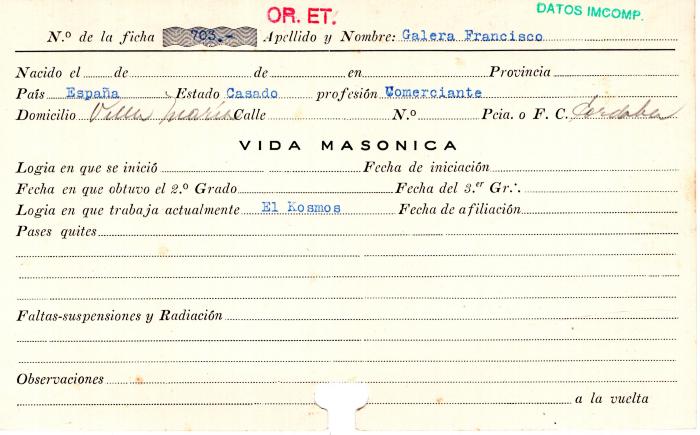 OR. ET.
DATOS IMCOMP.
N.º de la ficha 703.- Apellido y Nombre: Galera Francisco
Nacido el de de en Provincia
País España Estado Casado profesión Comerciante
Domicilio Villa María Calle N.º Pcia. o F. C. Cordoba
VIDA MASONICA
Logia en que se inició Fecha de iniciación
Fecha en que obtuvo el 2.º Grado Fecha del 3.er Gr∴
Logia en que trabaja actualmente El Kosmos Fecha de afiliación
Pases quites
Faltas-suspensiones y Radiación
Observaciones
a la vuelta